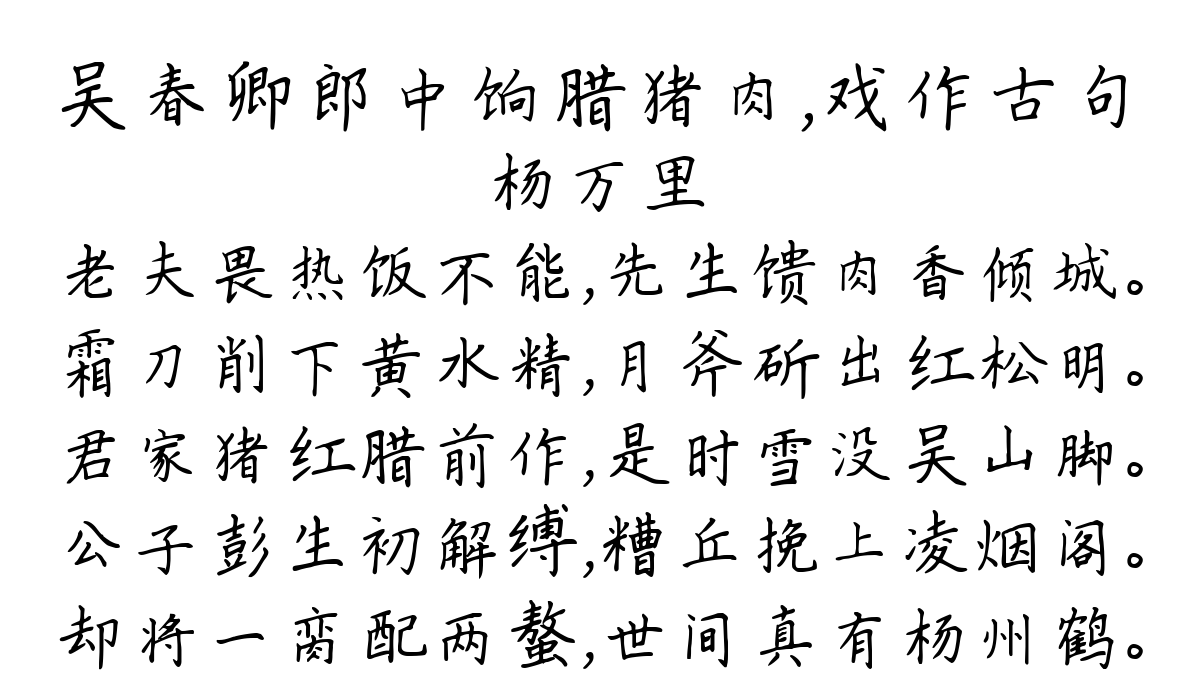 吴春卿郎中饷腊猪肉,戏作古句
杨万里
老夫畏热饭不能,先生馈肉香倾城。
霜刀削下黄水精,月斧斫出红松明。
君家猪红腊前作,是时雪没吴山脚。
公子彭生初解缚,糟丘挽上凌烟阁。
却将一脔配两螯,世间真有杨州鹤。